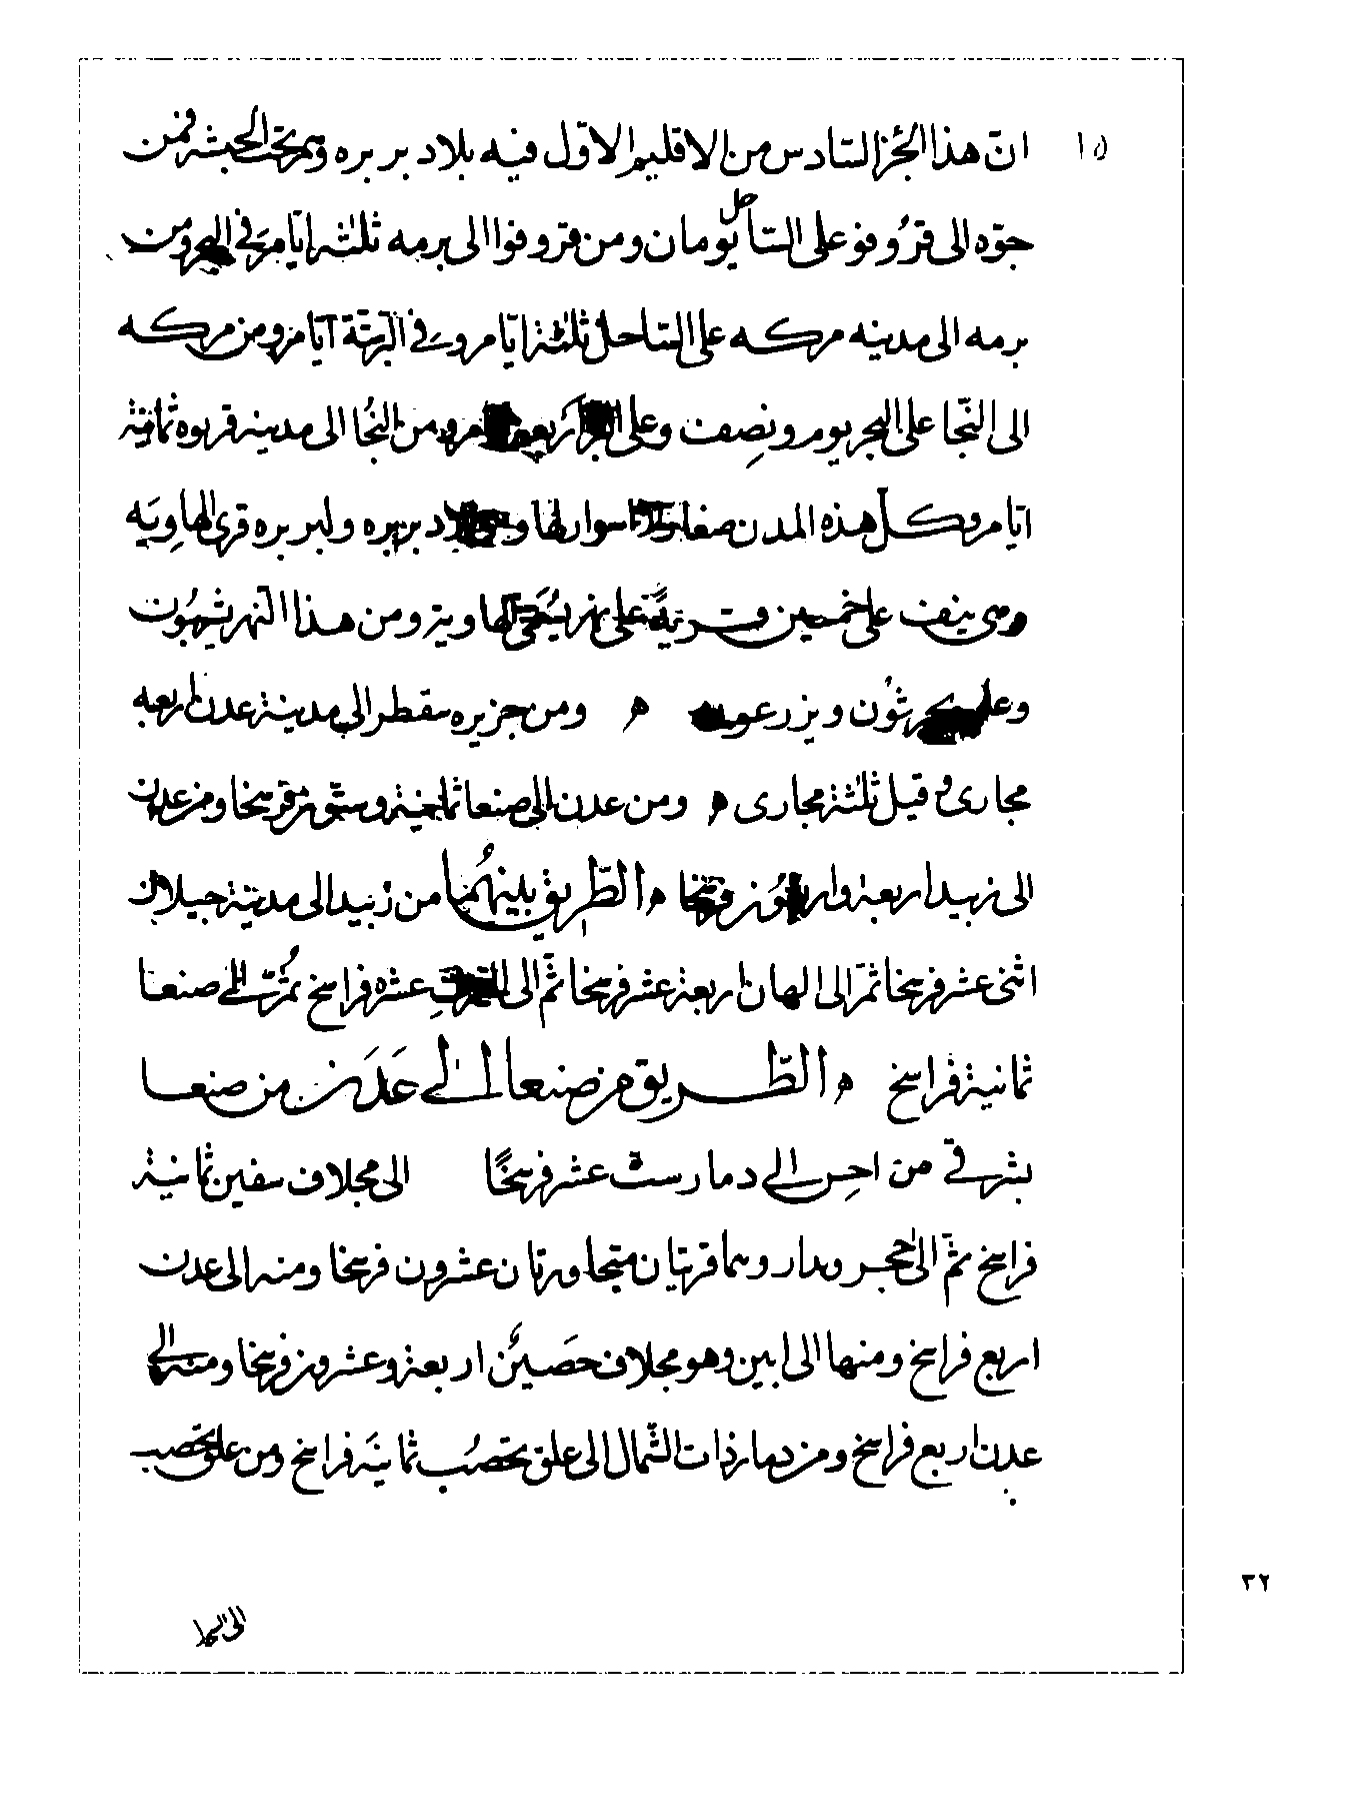 ١٥
انّ هذا الجُزء السّادس من الاقليم الاوّل فيه بلاد بربره وهم تحت الحبشه فمن
جوّه الى قرُوفو على السّاحل يومان ومن قروفوا الى برمه ثلثه ايّام في البحر ومن
برمه الى مدينه مركه على السّاحل ثلثة ايّام وفي البرّيّة ايّام ومن مركه
الى النّجا على البحر يوم ونِصف وعلى البر اربعه ايام ومن النجُا الى مدينه قربوه ثمانية
ايّام وكل هذه المدن صغار اسوار لها وهي بلاد بربره ولبربره قرى الهاوِيَه
وهي ينيف على خمسين قريةً على نهر يُسَمّى الهاوية ومن هذا النهر يشربُون
وعليه يحرثُون ويزرعون ه ومن جزيره سقطرا الى مدينة عدن اربعه
مجارى وقيل ثلثة مجارى ه ومن عدن الى صنعا ثمانية وستّون فرسخا ومن عدن
الى زبيد اربعة واربعُون فرسخا ه الطّريق بينهُما من زُبيد الى مدينة جيلان
اثنى عشر فرسخا ثمّ الى الهان اربعة عشر فرسخا ثمّ الى عشره فراسخ ثمُّ الى صنعا
ثمانية فراسخ ه الطّريق من صنعا الى عَدَن من صنعا
بشرقي من احسِ الى دمار ستة عشر فرسخًا الى مخلاف سفين ثمانية
فراسخ ثمّ الى حجر وبدار وهما قريتان متجاورتان عشرون فرسخا ومنه الى عدن
اربع فراسخ ومنها الى ابين وهو مخلاف حصَين اربعة وعشرون فرسخا ومنه الى
عدن اربع فراسخ ومن دمار ذات الشّمال الى علق يحصُب ثمانيَة فراسخ ومن علق يحصب
٣٢